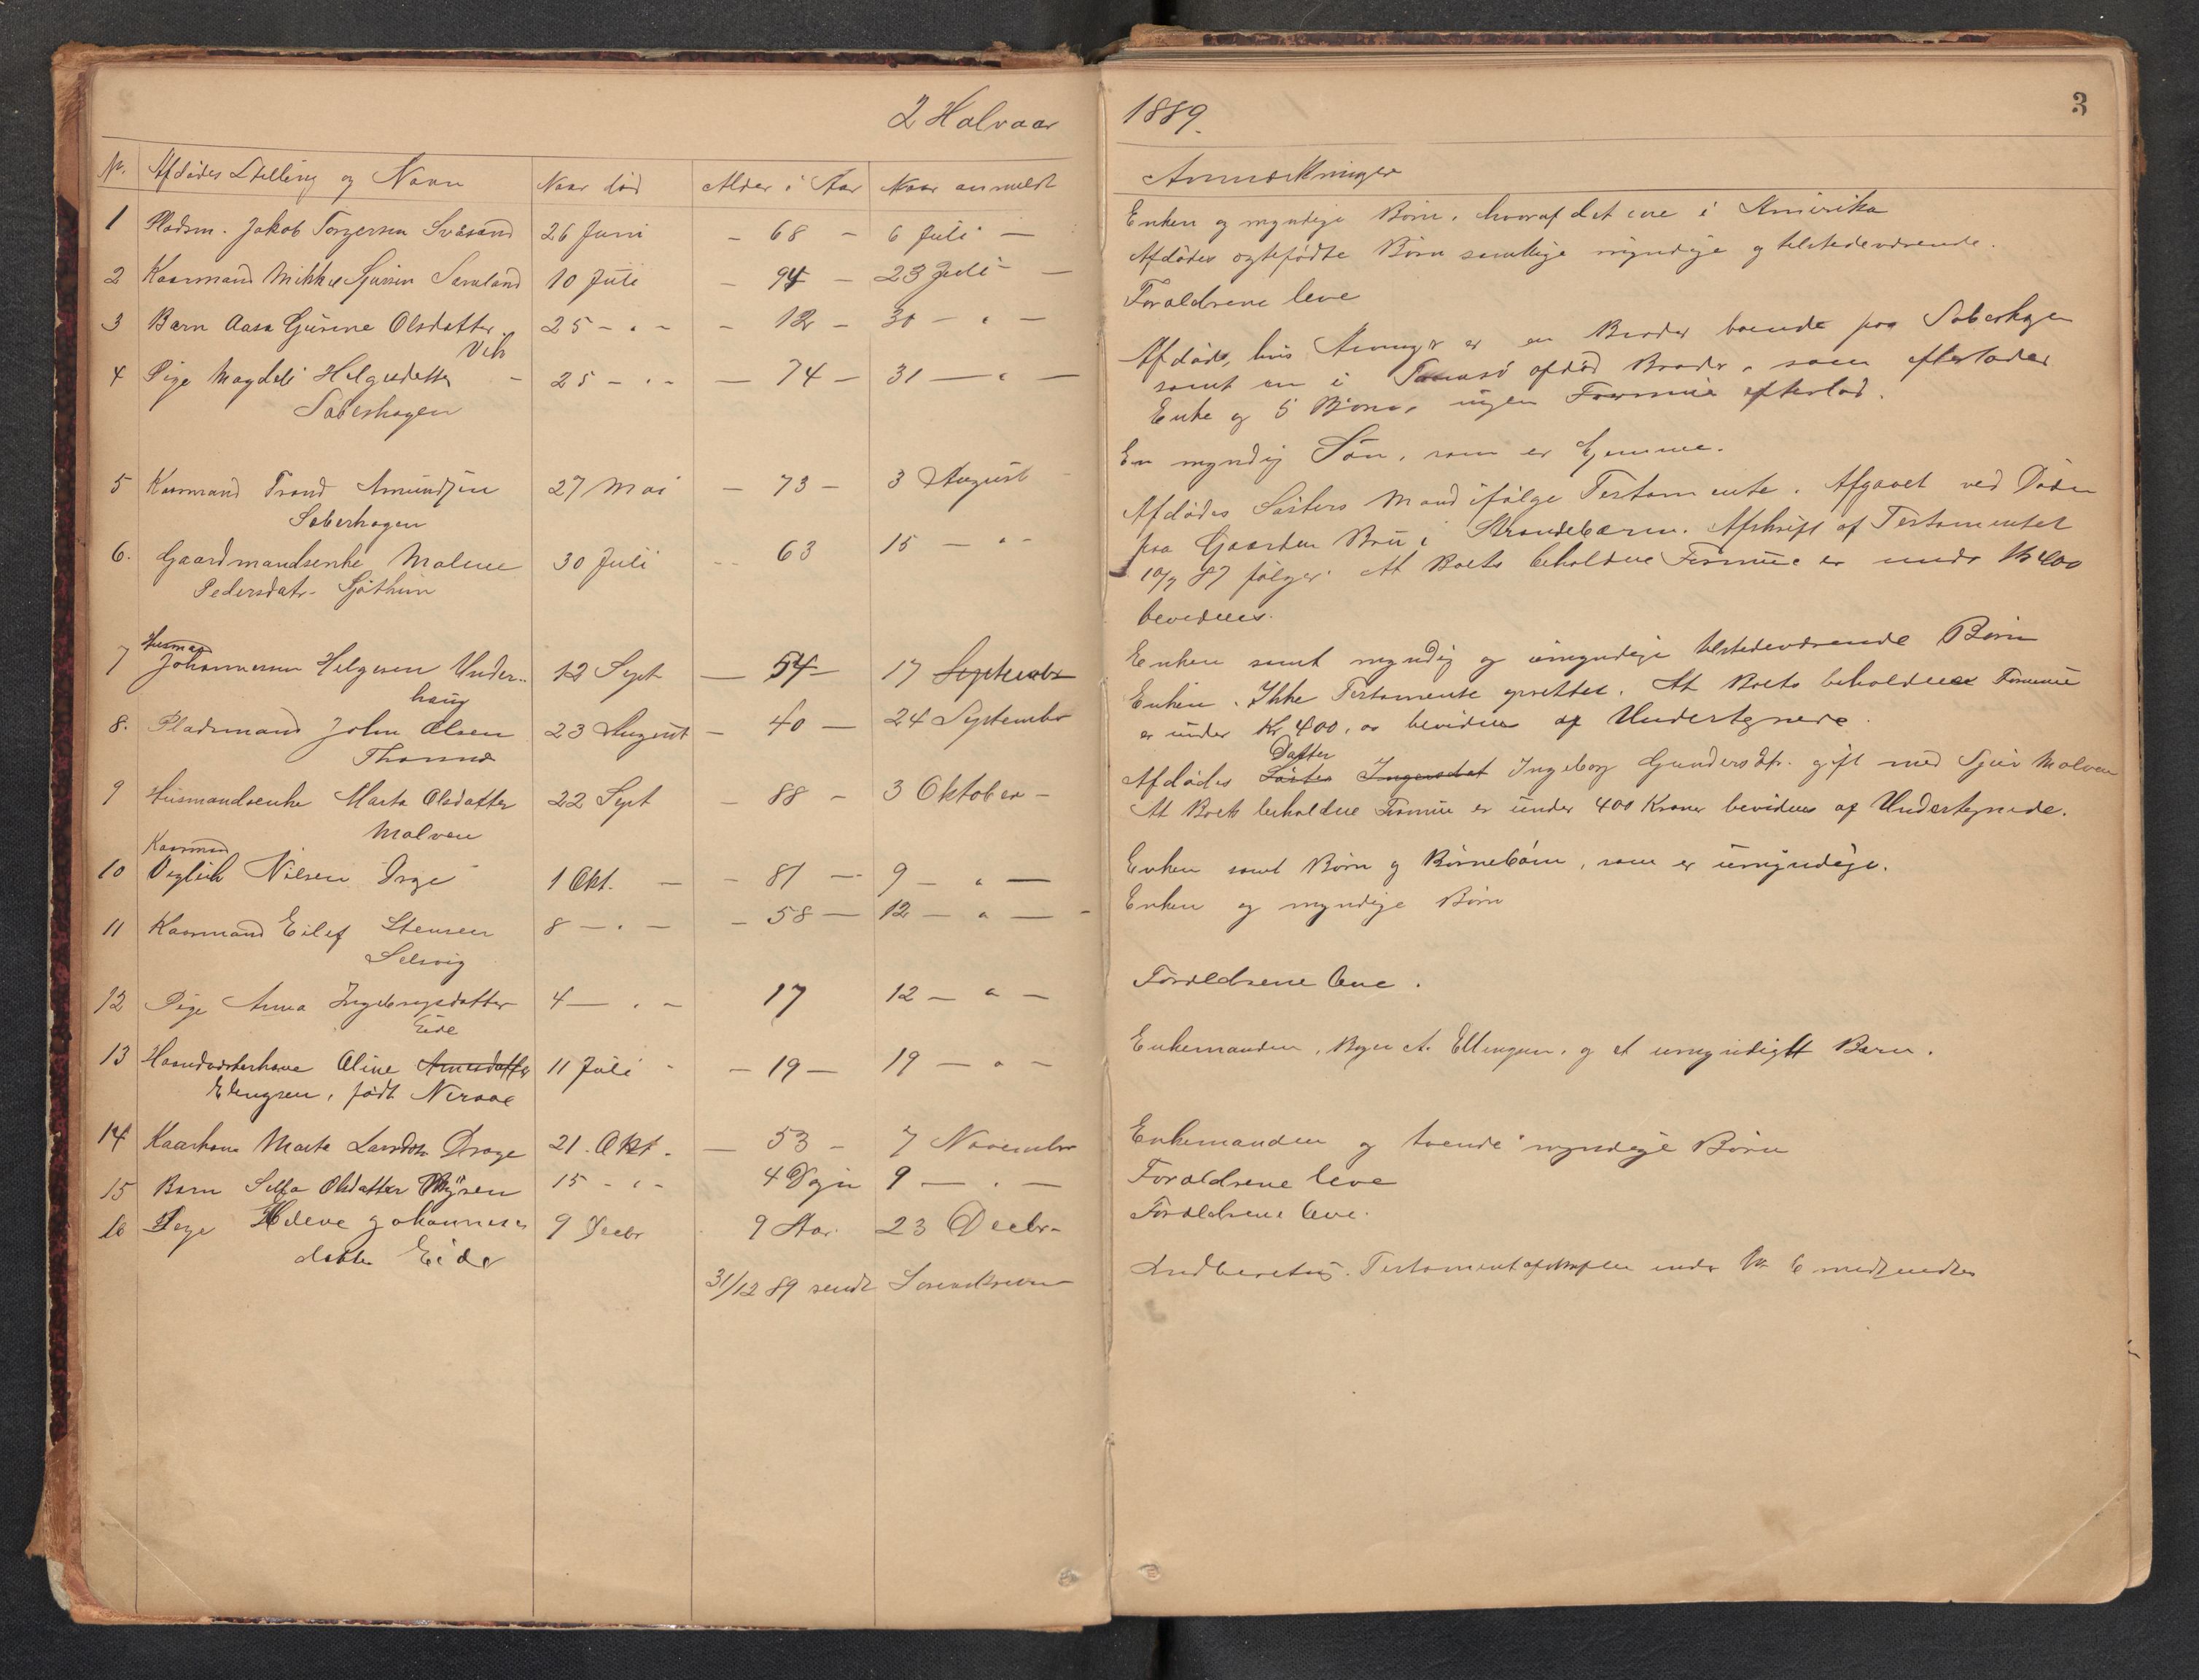 2 Halvaar 1889.
3
No. Afdødes Stilling og Navn Naar død Alder i Aar Naar anmeldt Anmærkninger
1 Pladsm. Jakob Torgersen Svåsand 26 Juni - 68 - 6 Juli - Enken og myndige Børn, hvoraf det ene i Amerika
2 Kaarmand Mikkel Sjursen Samland 10 Juli - 94 - 23 Juli - Afdødes ægtefødte Børn samtlige myndige og tilstedeværende.
3 Barn Aasa Gurine Olsdatter 25 - " - - 12 - 30 - " - Forældrene leve
Vik
4 Pige Magdeli Helgesdatter - 25 - " - - 74 - 31 - " - Afdøde, hvis Arving er en Broder boende paa Soberhagen
Soberhagen samt en i afdød Broder, som efterlader
Enke og 5 Børn, ingen Formue efterlod.
5 Kaarmand Trond Amundsen 27 Mai - 73 - 3 August En myndig Søn, som er hjemme.
Soberhagen
6. Gaardmandsenke Malene 30 Juli 63 15 - " - Afdødes Søsters Mand ifølge Testamente. Afgaaet ved Døden
Pedersdatr. Sjøthun paa Gaarden Bru i Strandebarm. Afskrift af Testamentet
10/7 87 følger. At Boets beholdne Formue er under Kr 400
bevidnes.
Husmand
7 Johannesen Helgesen Under- 12 Sept - 54 - 17 September Enken samt myndig og umyndige tilstedeværende Børn
haug
8. Pladsmand John Olsen 23 August - 40 - 24 September Enken. Ikke Testamente oprettet. At Boets beholdne Formue
er under Kr 400, bevidnes af Undertegnede.
9 Husmandsenke Marta Olsdatter 22 Sept - 88 - 3 Oktober - Afdødes Søster Datter Ingeborg Gundersdtr. gift med Sjur Molven
Molven At Boets beholdne Formue er under 400 Kroner bevidnes af Undertegnede.
Kaarmand
10 Nilsen 1 Okt. - - 81 - 9 - " - Enken samt Børn og Børnebørn, som er umyndige.
11 Kaarmand Eilef Stensen 8 - " - - 58 - 12 - " - Enken og myndige Børn
Selsvig
12 Pige Anna Ingebrigtsdatter 4 - " - 17 12 - " - Forældrene leve.
Eide
13 Haandværkerkone Oline Arnesdatter 11 Juli - 19 - 19 - " - Enkemanden, A. Ellingsen, og et umyndigt Barn.
Elingsen, født
14 Kaarkone Marta Larsdtr Drage 21. Okt. - 53 - 7 November Enkemanden og tvende myndige Børn
15 Barn Olsdatter 15 - " - 4 Dage 9 - " - Forældrene leve
16 Pige Helene Johannes- 9 Decbr 9 Aar 23 Decbr. Forældrene leve.
datter Eide
31/12 89 sendt Sorenskriveren Indberetning. Testamentafskriften under No 6 medsendtes